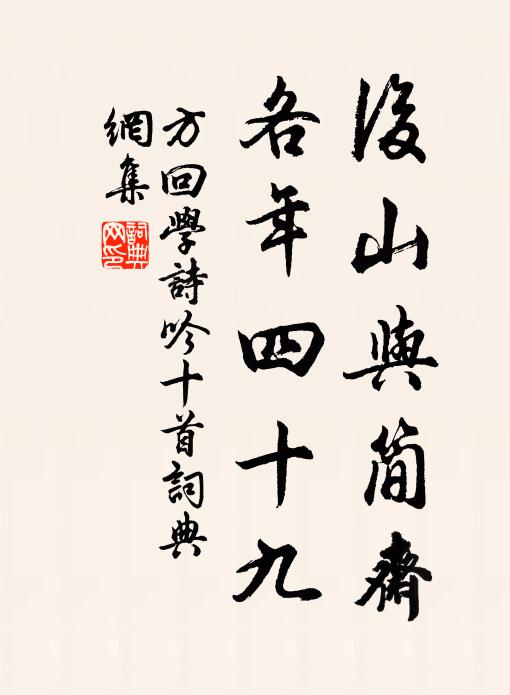 後山與簡齋
各年四十九
方回學詩吟十首詞典
網集
詞典
网印